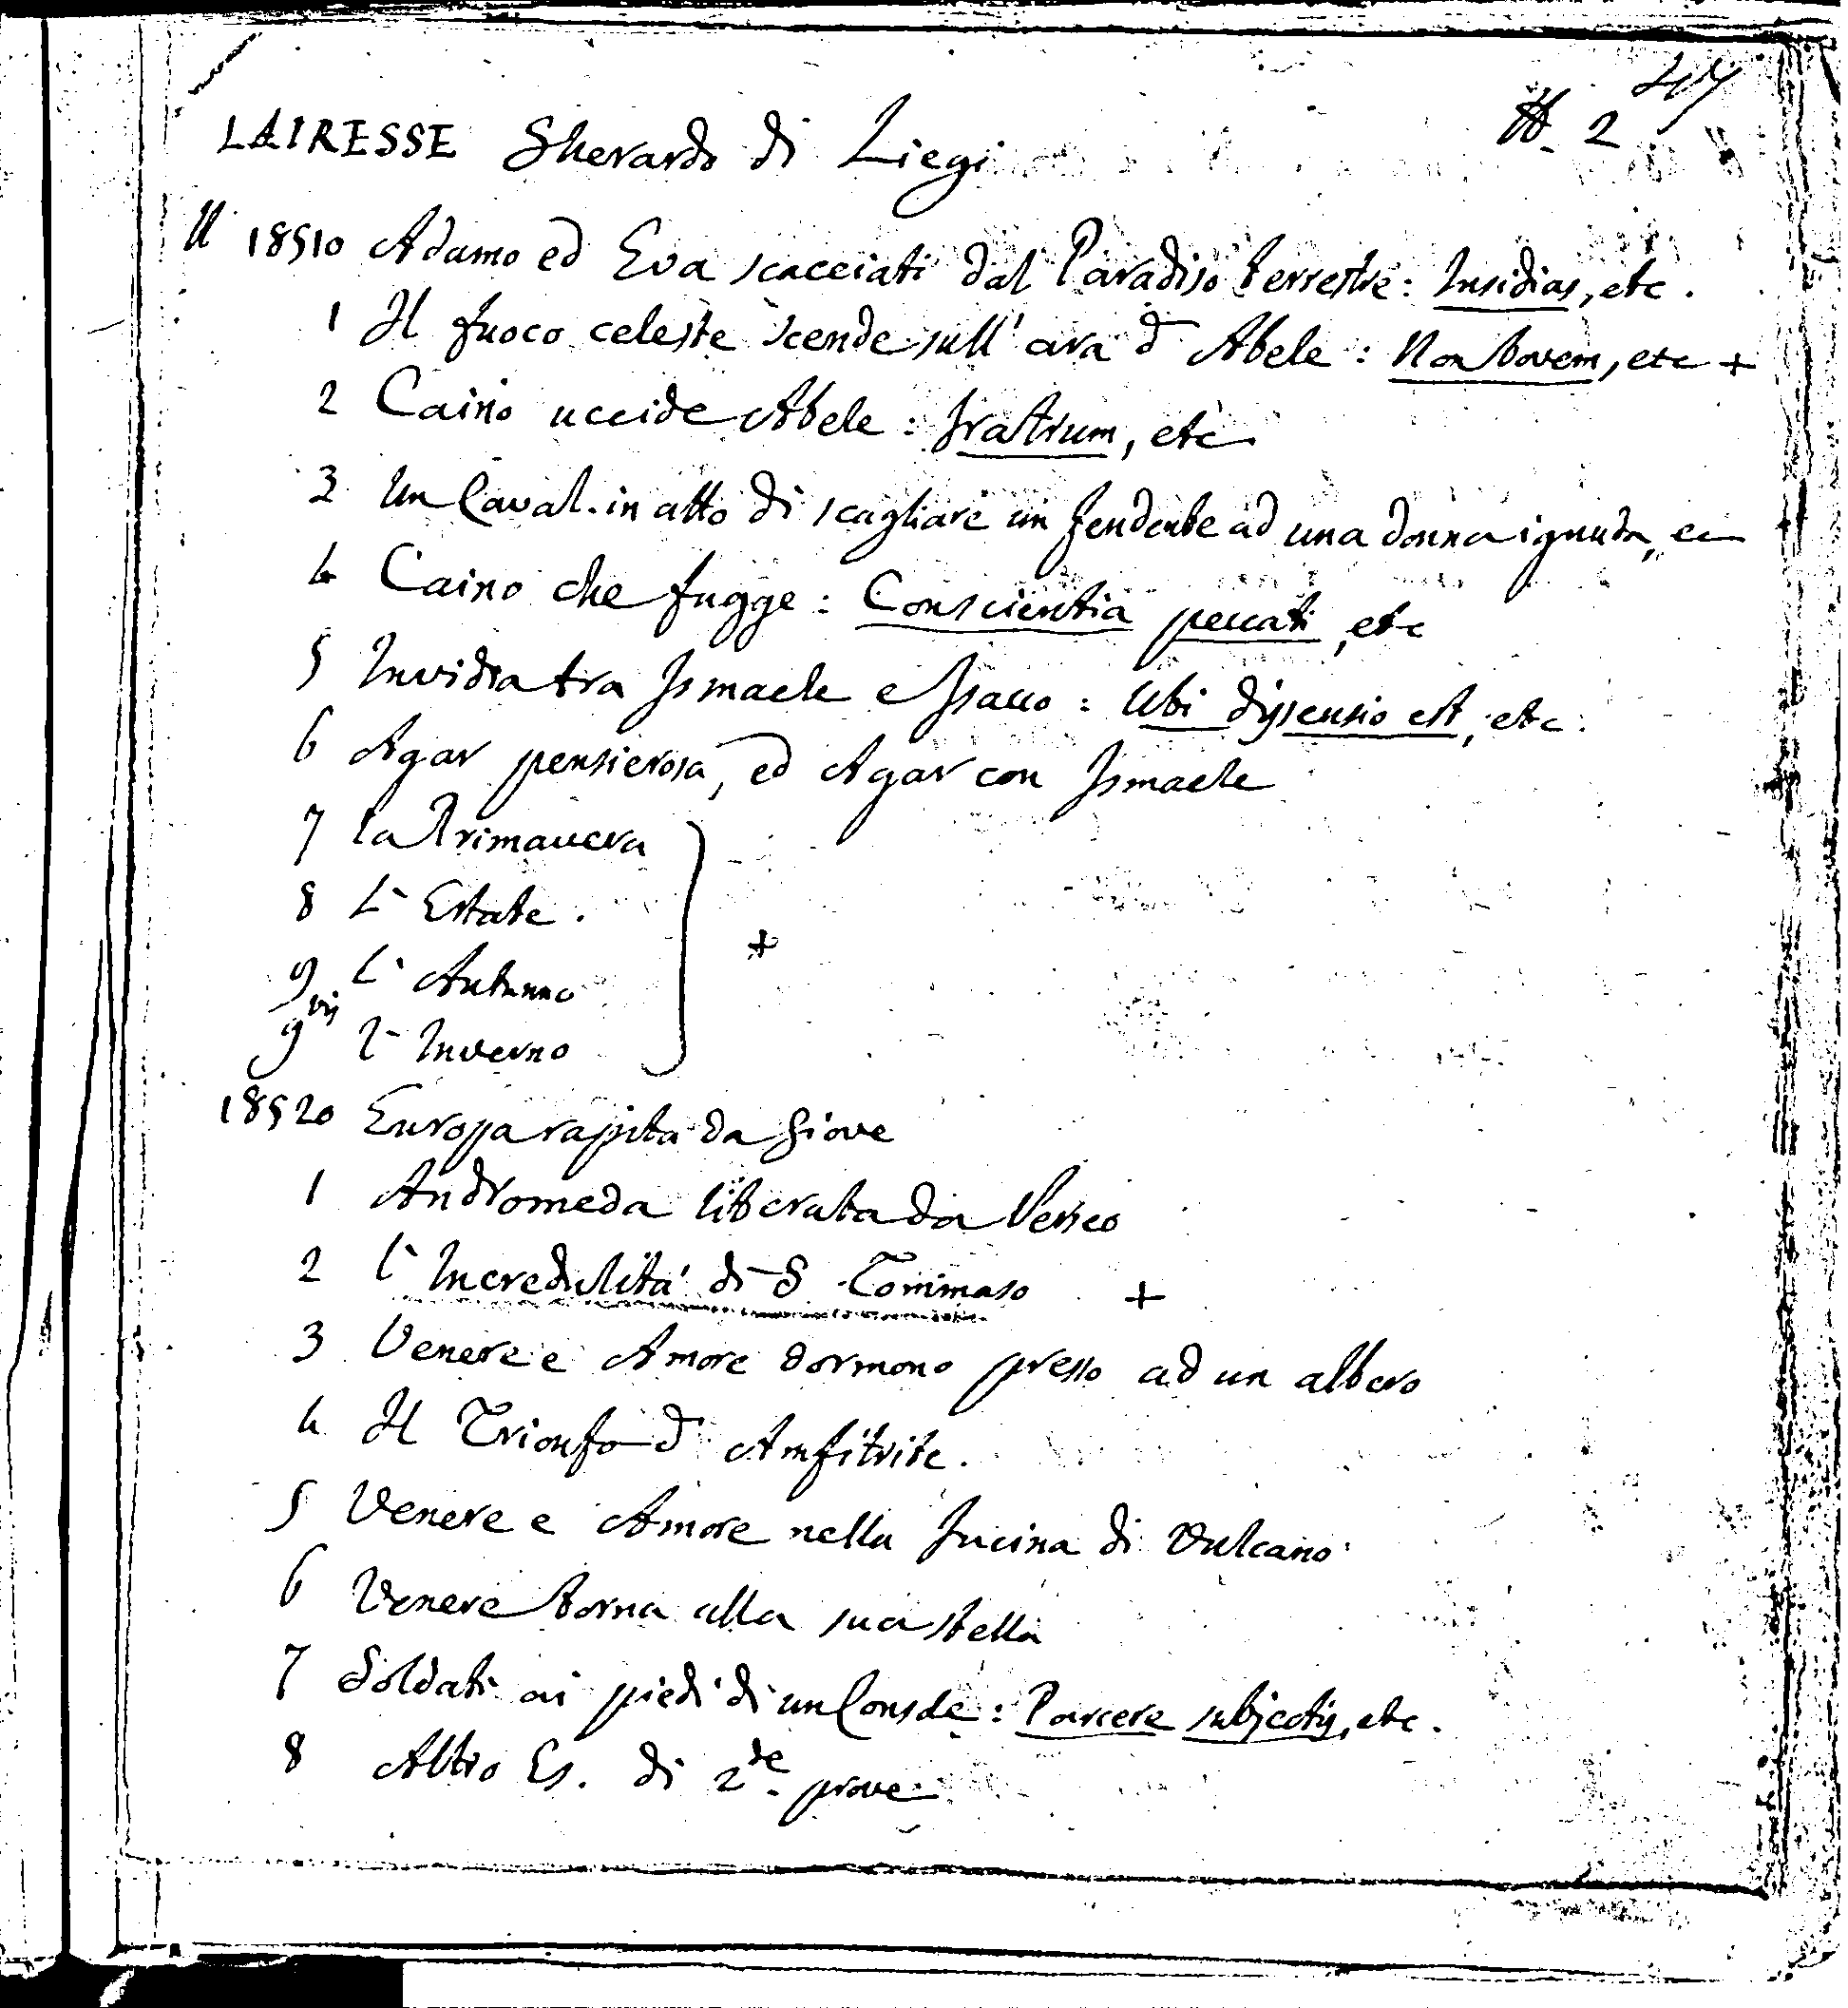 217
2
LAIRESSE Gherardo di Liegi
18510 Adamo ed Eva scacciati dal Paradiso terrestre: Insidias, etc.
1 Il fuoco celeste scende sull' ara d' Abele: Non bovem, etc +
2 Caino uccide Abele: fratrum, etc
3 Un Caval. in atto di scagliare un fendente ad una donna ignuda, ec
4 Caino che fugge: Conscientia peccati, etc
5 Invidia tra Ismaele e Isacco: Ubi dissensio est, etc.
6 Agar pensierosa, ed Agar con Ismaele
7 la Primavera
8 L' Estate.
9 L' Autunno
+
9 l' Inverno
18520 Europa rapita da Giove
1 Andromeda liberata da Perseo
2 l' Incredulità di S. Tommaso +
3 Venere e Amore dormono presso ad un albero
4 Il Trionfo d' Amfitrite.
5 Venere e Amore nella fucina di Vulcano
6 Venere torna alla sua stella
7 Soldati ai piedi di un Console: Parcere subjectis, etc.
8 Altro Es. di 2de. prove